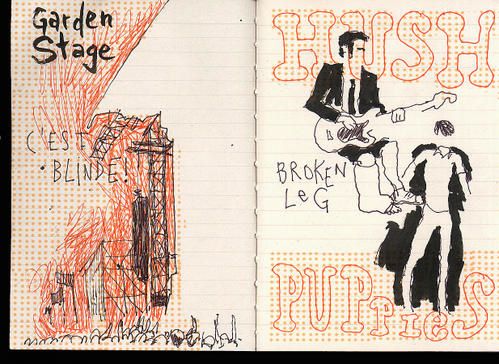 Garden
Stage
C'EST
BLINDÉ!
HUSH
BROKEN
LeG
PUPPieS